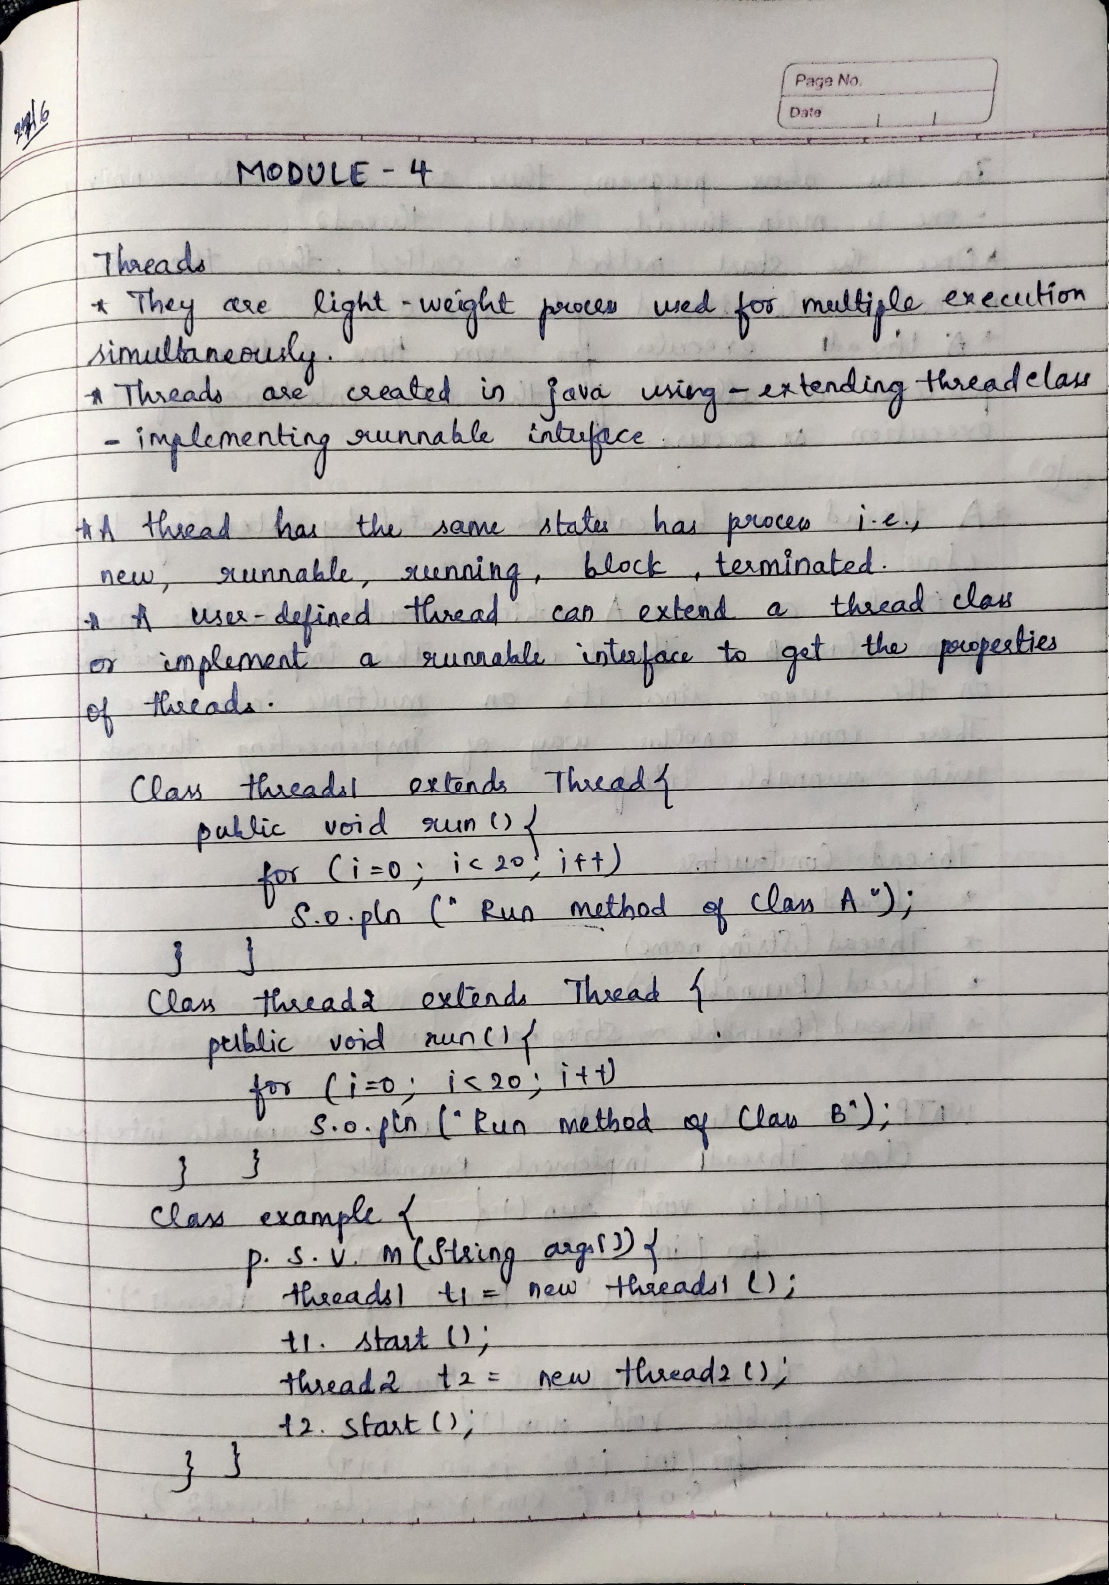 Page No.
Date
MODULE - 4
Threads
* They are light-weight process used for multiple execution
simultaneously.
* Threads are created in java using - extending thread class
- implementing runnable interface.
* A thread has the same states has process i.e.,
new, runnable, running, block, terminated.
* A user-defined thread can extend a thread class
or implement a runnable interface to get the properties
of threads.
Class threads1 extends Thread{
public void run () {
for (i=0; i<20; i++)
S.o.pln (" Run method of Class A ");
} }
Class thread2 extends Thread {
public void run () {
for (i=0; i<20; i++)
S.o.pln ("Run method of Class B");
} }
Class example {
p. s. v. m (String args[]) {
threads1 t1 = new threads1 ();
t1. start ();
thread2 t2 = new thread2 ();
t2. start ();
} }